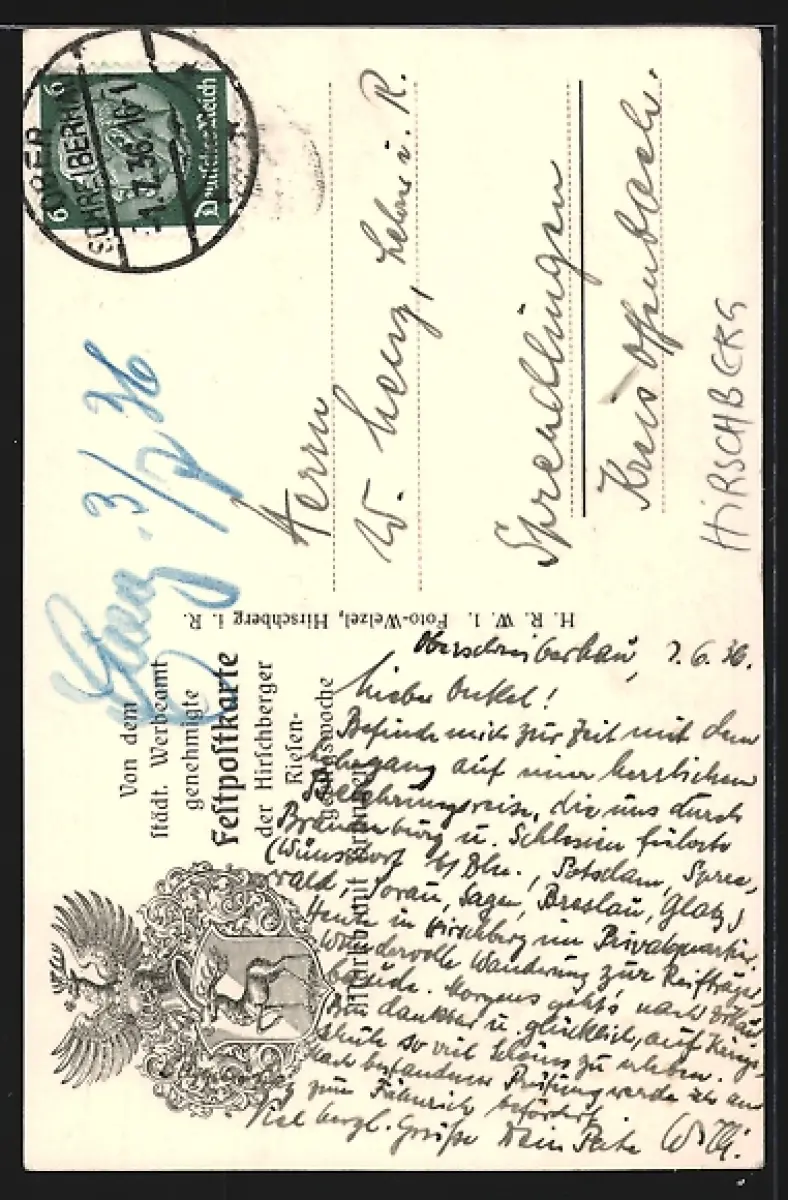 6 6
Deutsches Reich
OBER
SCHREIBERHAU
-1.7.36.16-1
3/7 36
Herrn
W. Lenz, Lehrer i. R.
Sprendlingen
Kreis Offenbach.
HIRSCHBERG
H. R. W. 1. Foto-Welzel, Hirschberg i. R.
Von dem
städt. Werbeamt
genehmigte
Festpostkarte
der Hirschberger
Riesen-
gebirgswoche
Oberschreiberhau, 36.
Lieber Onkel!
Befinde mich zur Zeit mit dem
Lehrgang auf einer herrlichen
Belehrungsreise, die uns durch
Brandenburg u. Schlesien führte
(Wünsdorf b/Bln., Potsdam, Spree-
wald, Sorau, Sagan, Breslau, Glatz)
Heute in Hirschberg im Privatquartier.
Wundervolle Wanderung zur Reifträger-
baude. Morgens geht's nach
Bin dankbar u. glücklich, auf Kriegs-
schule so viel Schönes zu erleben.
Nach bestandener Prüfung werde ich am
zum Fähnrich befördert.
Viel herzl. Grüße Dein Pate Willi.